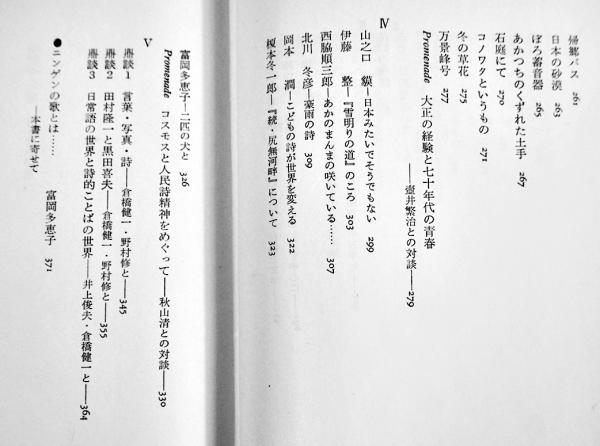 帰郷バス 261
日本の砂漠 263
ぼろ蓄音器 265
あかつちのくずれた土手 267
石庭にて 270
コノワタというもの 271
冬の草花 275
万景峰号 277
Promenade 大正の経験と七十年代の青春
――壺井繁治との対談――279
Ⅳ
山之口 貘―日本みたいでそうでもない 299
伊藤 整―『雪明りの道』のころ 303
西脇順三郎―あかのまんまの咲いている…… 307
北川 冬彦―豪雨の詩 309
岡本 潤―こどもの詩が世界を変える 322
榎本冬一郎―『続・尻無河畔』について 323
富岡多恵子―二匹の犬と 326
Promenade コスモスと人民詩精神をめぐって――秋山清との対談――330
Ⅴ
鼎談1 言葉・写真・詩――倉橋健一・野村修と――345
鼎談2 田村隆一と黒田喜夫――倉橋健一・野村修と――355
鼎談3 日常語の世界と詩的ことばの世界――井上俊夫・倉橋健一と――364
●ニンゲンの歌とは……… 富岡多恵子 371
――本書に寄せて